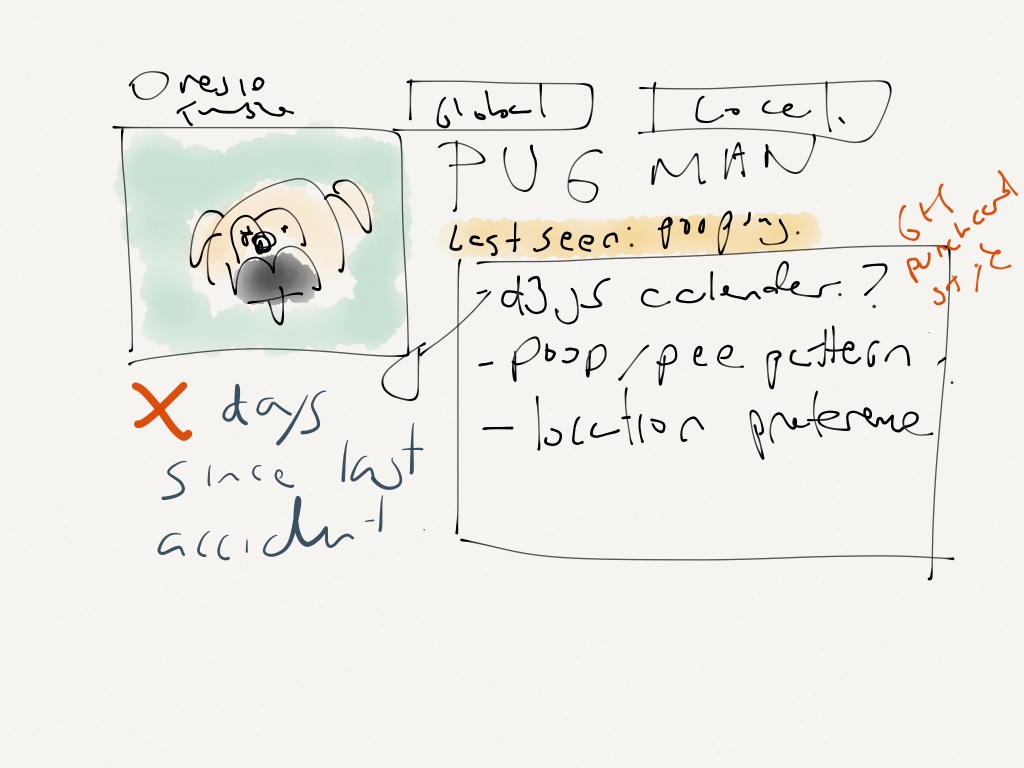 Global
PUG MAN
Last seen: pooping.
- d3js calender. ?
- poop/pee pattern.
- location preference
GH
punchcard
X days
since last
accident